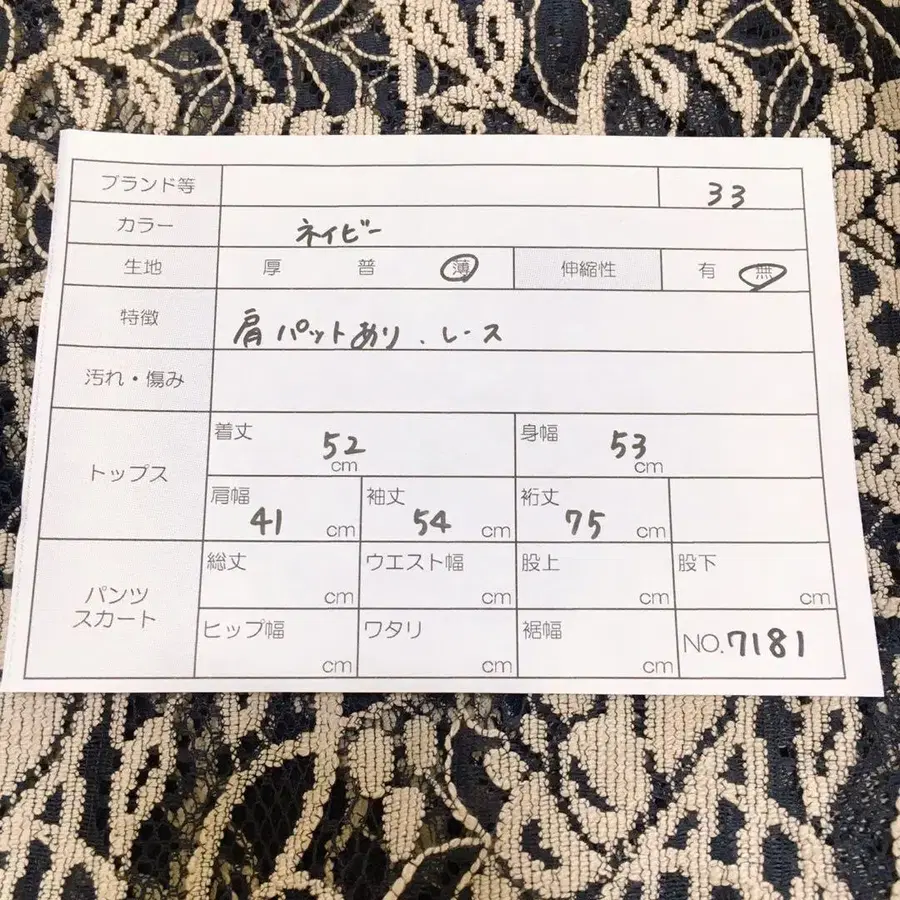 ブランド等 33
カラー ネイビー
生地 厚 普 薄 伸縮性 有 無
特徴 肩パットあり、レース
汚れ・傷み
トップス
着丈 52 cm 身幅 53 cm
肩幅 41 cm 袖丈 54 cm 裄丈 75 cm
パンツ
スカート
総丈 cm ウエスト幅 cm 股上 cm 股下 cm
ヒップ幅 cm ワタリ cm 裾幅 cm NO.7181